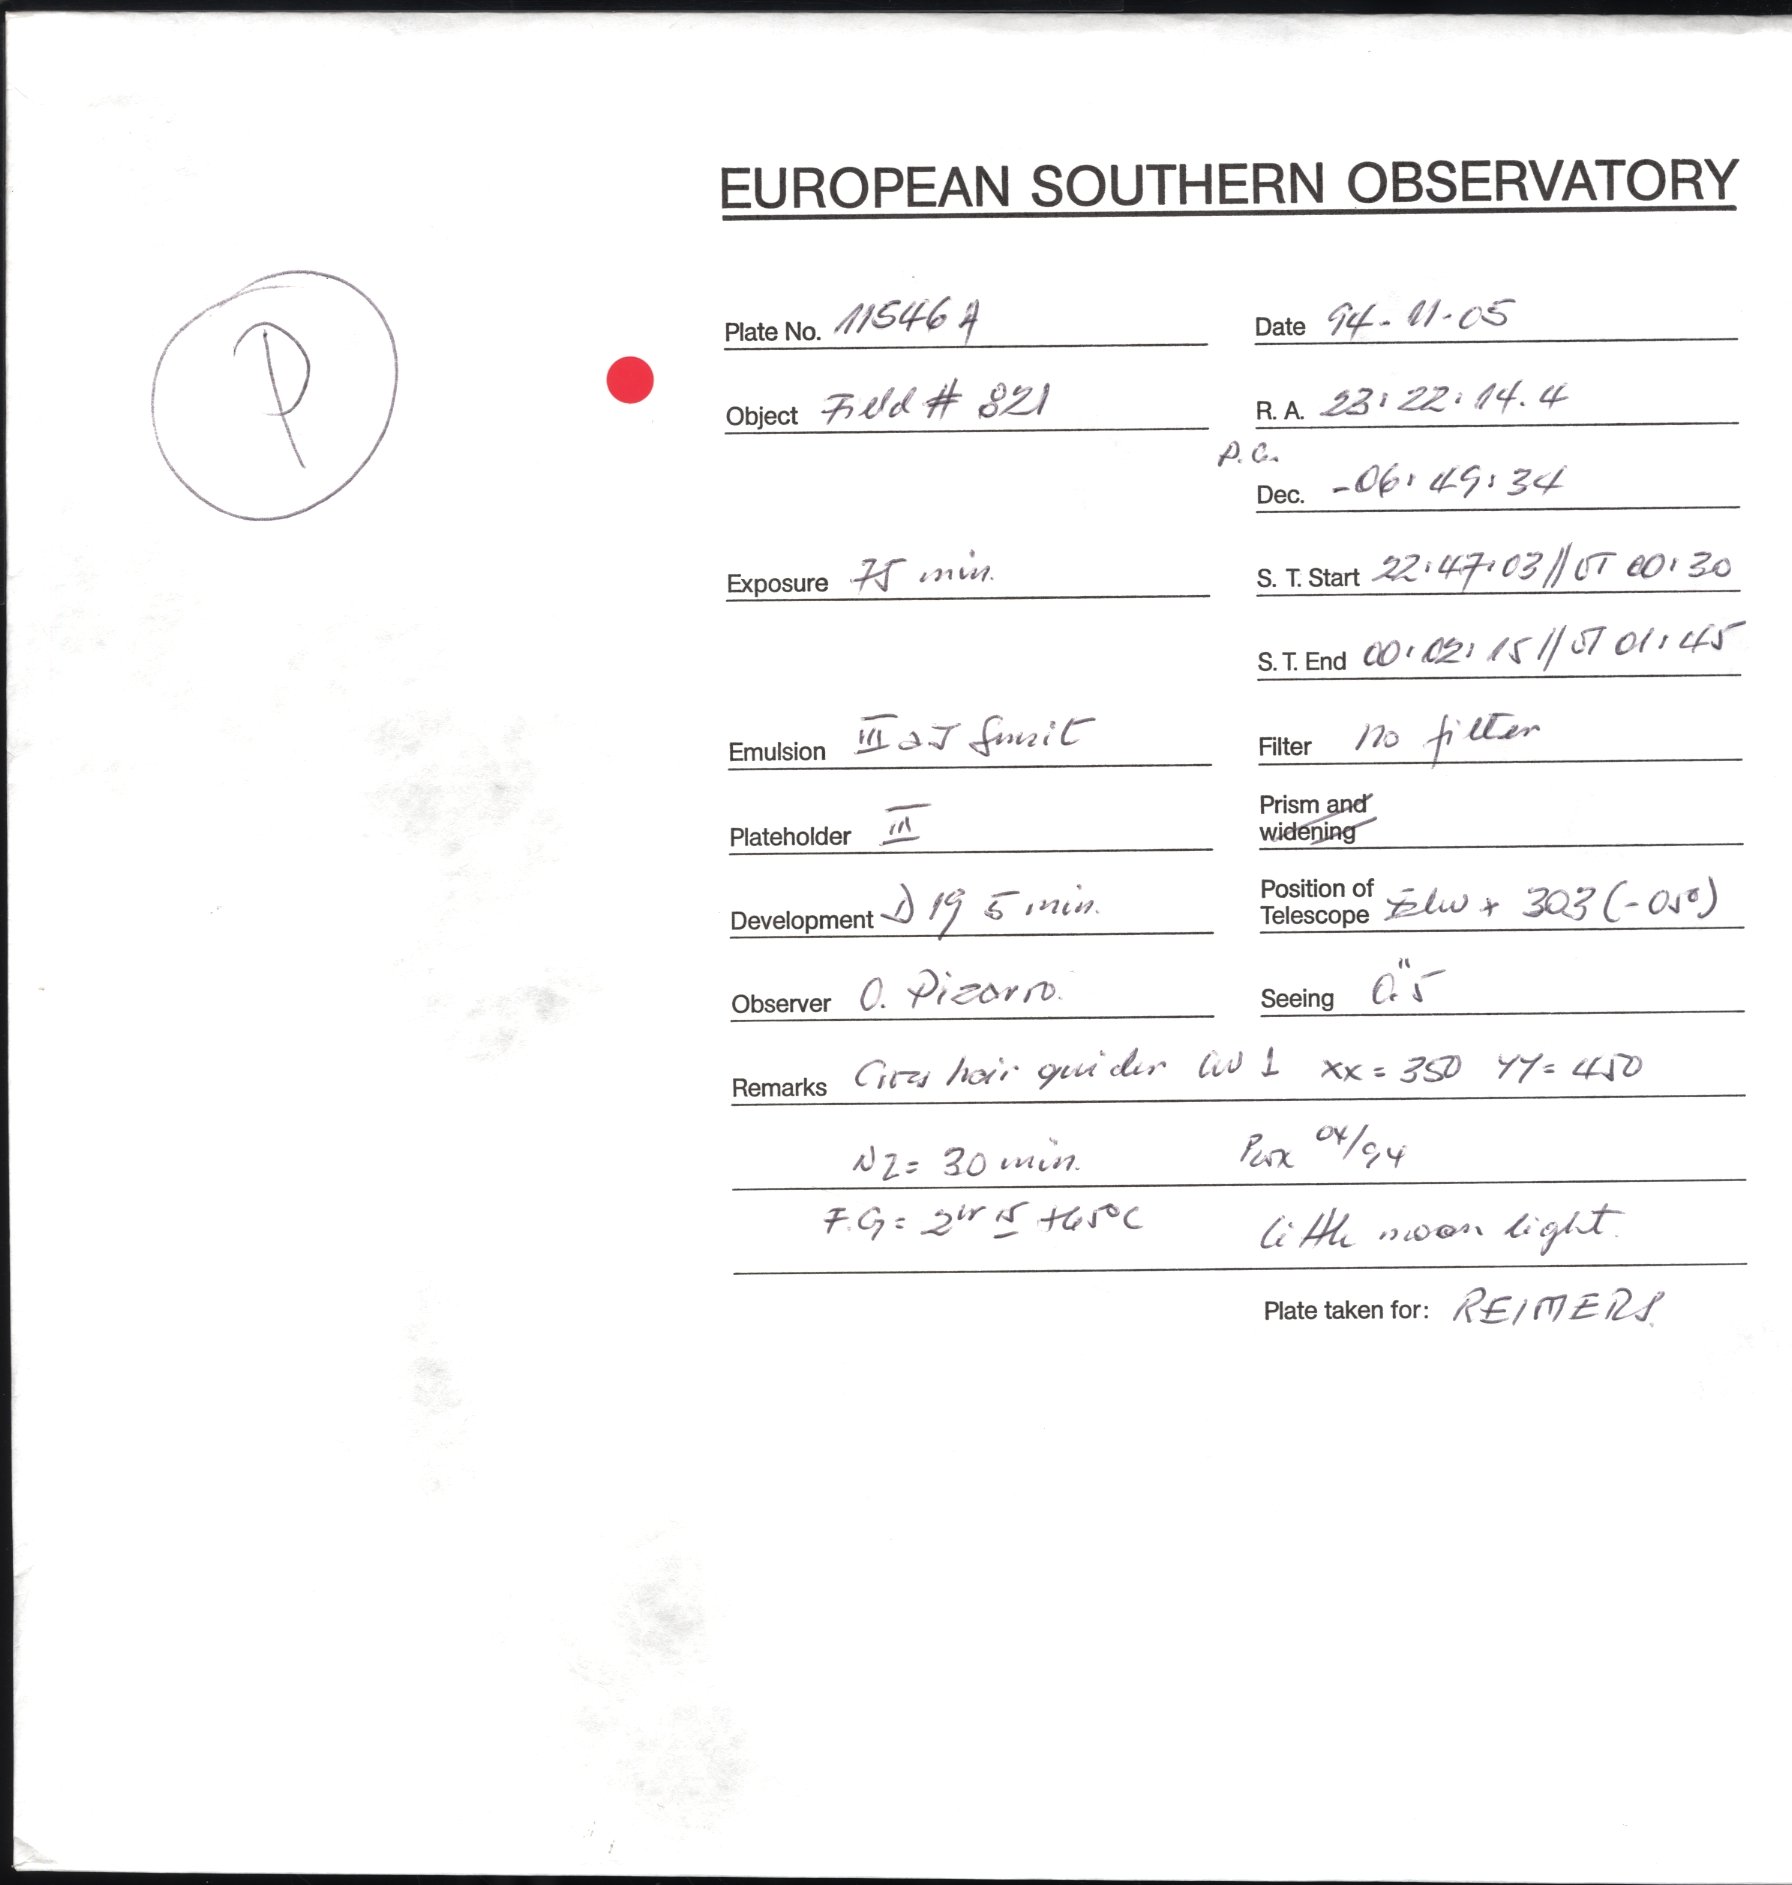 EUROPEAN SOUTHERN OBSERVATORY
P
Plate No. 11546 A
Date 94-11-05
Object Field # 821
R. A. 23:22:14.4
P.G.
Dec. -06:49:34
Exposure 75 min.
S. T. Start 22:47:03 // UT 00:30
S. T. End 00:02:15 // UT 01:45
Emulsion III a J
Filter no filter
Plateholder III
Prism and
widening
Development D19 5 min.
Position of
Telescope + 303 (-050)
Observer O. Pizarro.
Seeing 0."5
Remarks Cross hair guider 1 XX = 350 YY = 450
N2 = 30 min. 04/94
F.G = 2hr 15 +65°C little moon light.
Plate taken for: REIMERS.